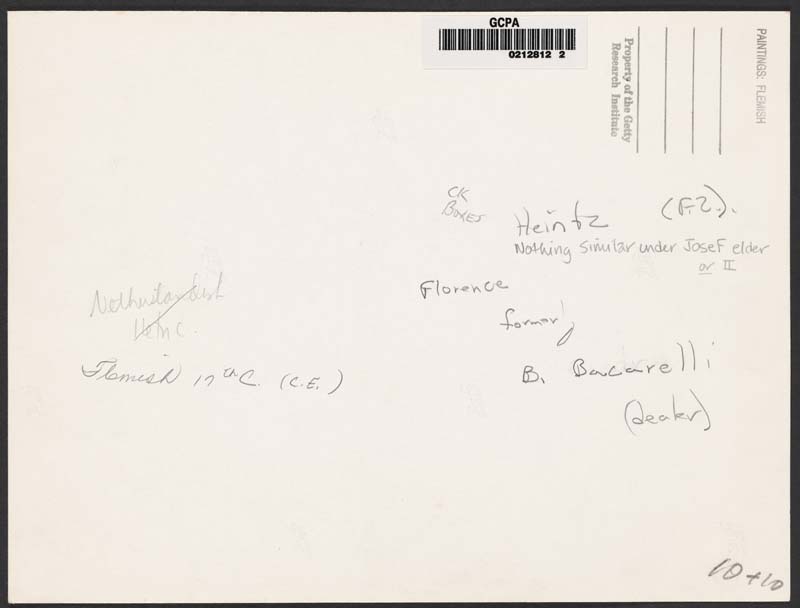 GCPA
0212812 2
Property of the Getty
Research Institute
PAINTINGS: FLEMISH
CK
Boxes
Heintz (F.Z.).
Nothing similar under Josef elder
or II
Florence
formerly
B. Bacarelli
(dealer)
Flemish 17th C. (C.E.)
10 + 10